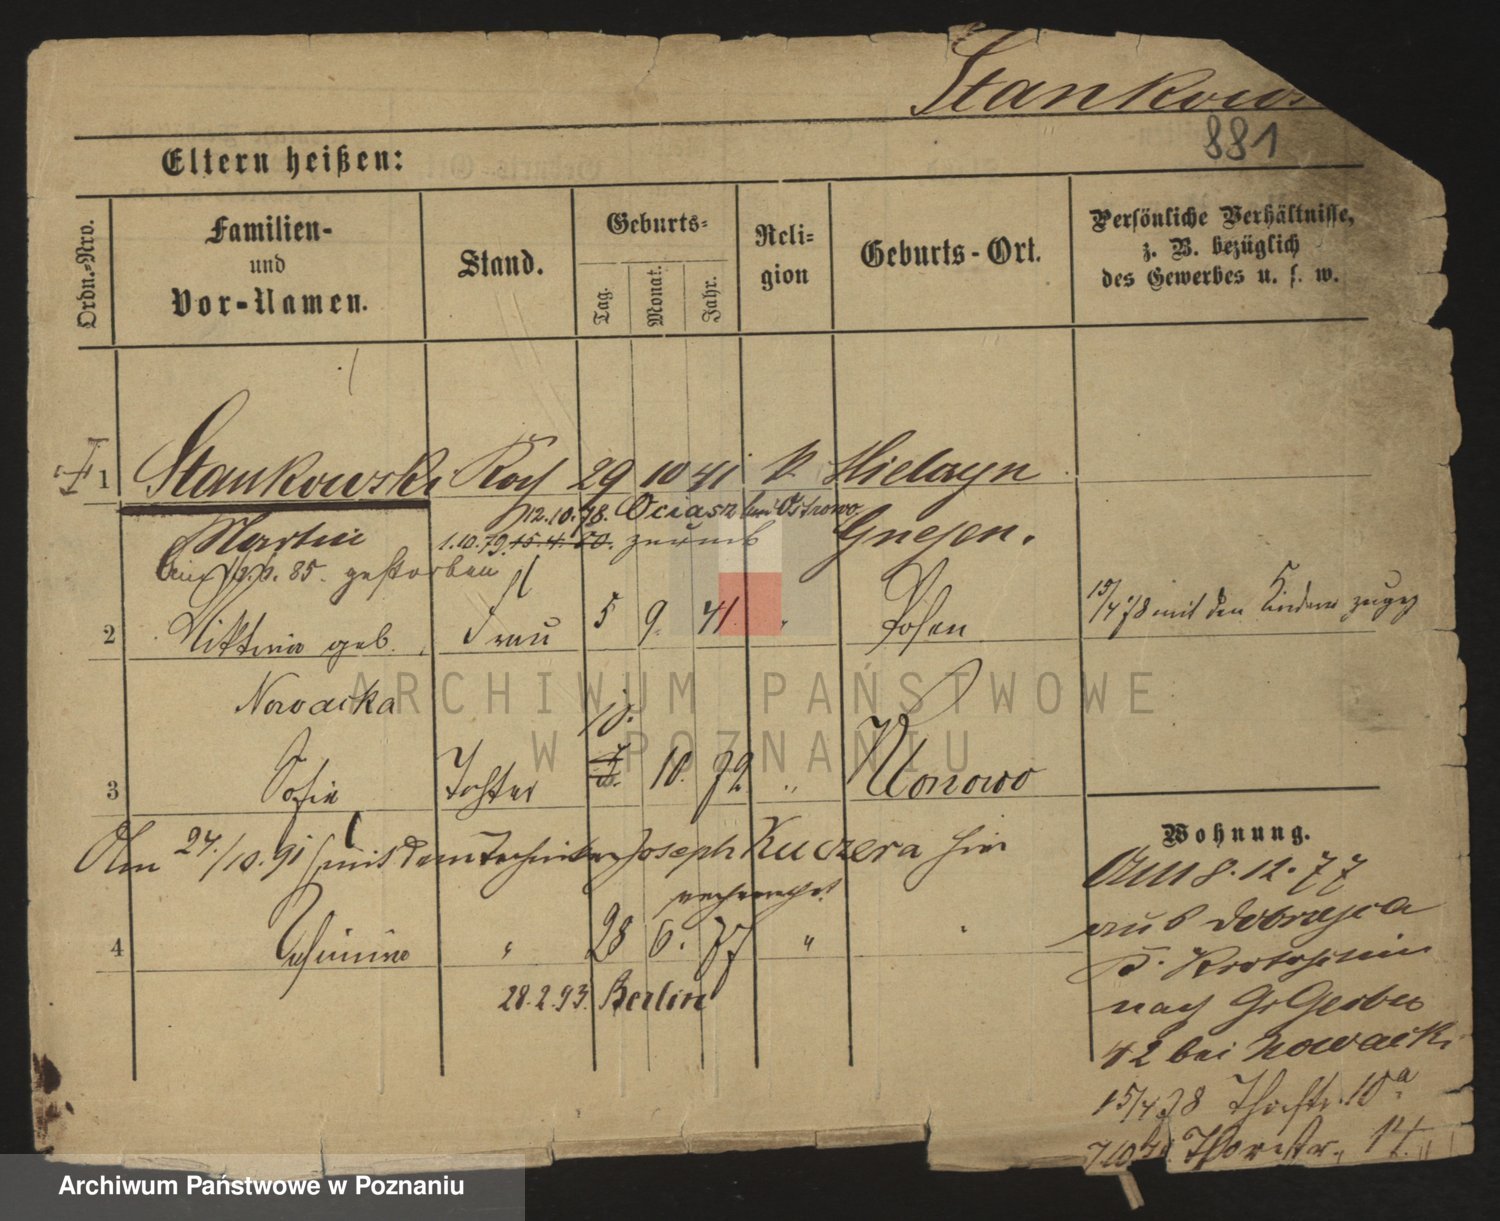 Stankows
881
Eltern heißen:
Ordn.-Nro.
Familien-
und
Vor-Namen.
Stand.
Geburts-
Tag.
Monat.
Jahr.
Reli-
gion
Geburts-Ort.
Persönliche Verhältnisse,
z. B. bezüglich
des Gewerbes u. s. w.
1 Stankowski Koch 29 10 41 k.
12.10.78. Ociasz bei Ostrowo
Martin 1.10.79. 15.4.80. zurück Gnesen.
85. gestorben
2 Viktoria geb. Frau 5 9. 41. " Posen 15/4 78 mit den Kindern zugez
Nowacka
10.
3 Sofie Tochter 10. 72 "
Am 24./10.91 mit dem Techniker Joseph Kuczera hier
verheirathet
4 " 28 6. 77 "
28.2.93. Berlin
Wohnung.
Am 8.12.77
aus Dobrzyca
Krotoschin
nach Gr Gerber
42 bei Nowacki
15/4 78 10a
Thorstr. 14.
ARCHIWUM PAŃSTWOWE
W POZNANIU
Archiwum Państwowe w Poznaniu